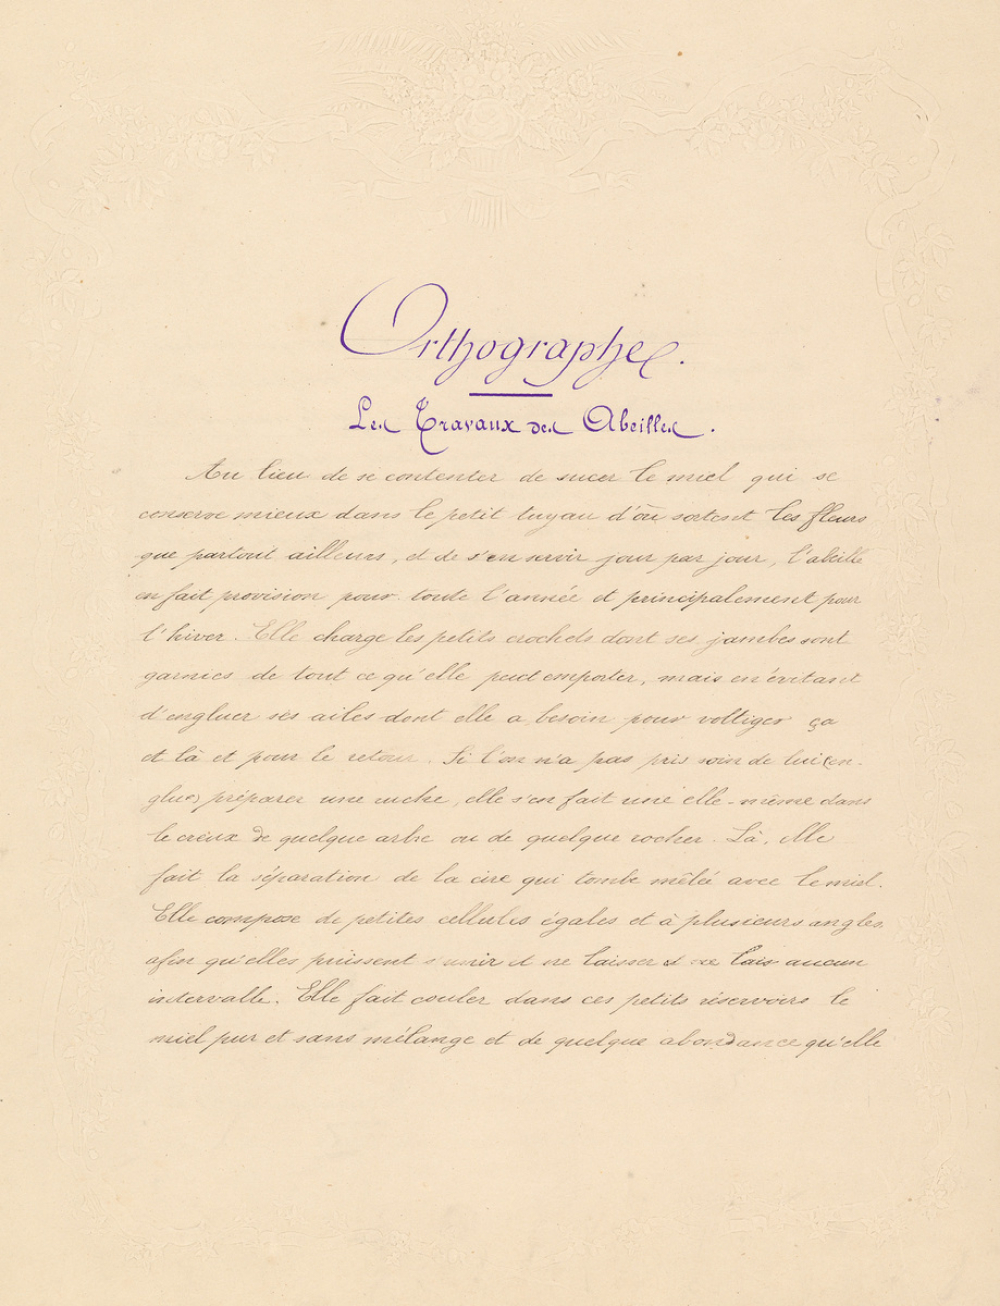 Orthographe.
Les Travaux des Abeilles.
Au lieu de se contenter de sucer le miel qui se
conserve mieux dans le petit tuyau d'où sortent les fleurs
que partout ailleurs, et de s'en servir jour par jour, l'abeille
en fait provision pour toute l'année et principalement pour
l'hiver. Elle charge les petits crochets dont ses jambes sont
garnies de tout ce qu'elle peut emporter, mais en évitant
d'engluer ses ailes dont elle a besoin pour voltiger ça
et là et pour le retour. Si l'on n'a pas pris soin de lui (en-
glué) préparer une ruche, elle s'en fait une elle-même dans
le creux de quelque arbre ou de quelque rocher. Là, elle
fait la séparation de la cire qui tombe mêlée avec le miel.
Elle compose de petites cellules égales et à plusieurs angles
afin qu'elles puissent s'unir et ne laisser lais aucun
intervalle. Elle fait couler dans ces petits réservoirs le
miel pur et sans mélange et de quelque abondance qu'elle